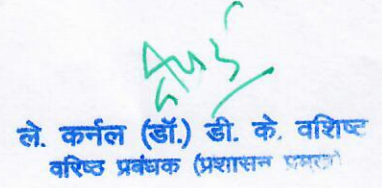 ले. कर्नल (डॉ.) डी. के. वशिष्ट
वरिष्ठ प्रबंधक (प्रशासन